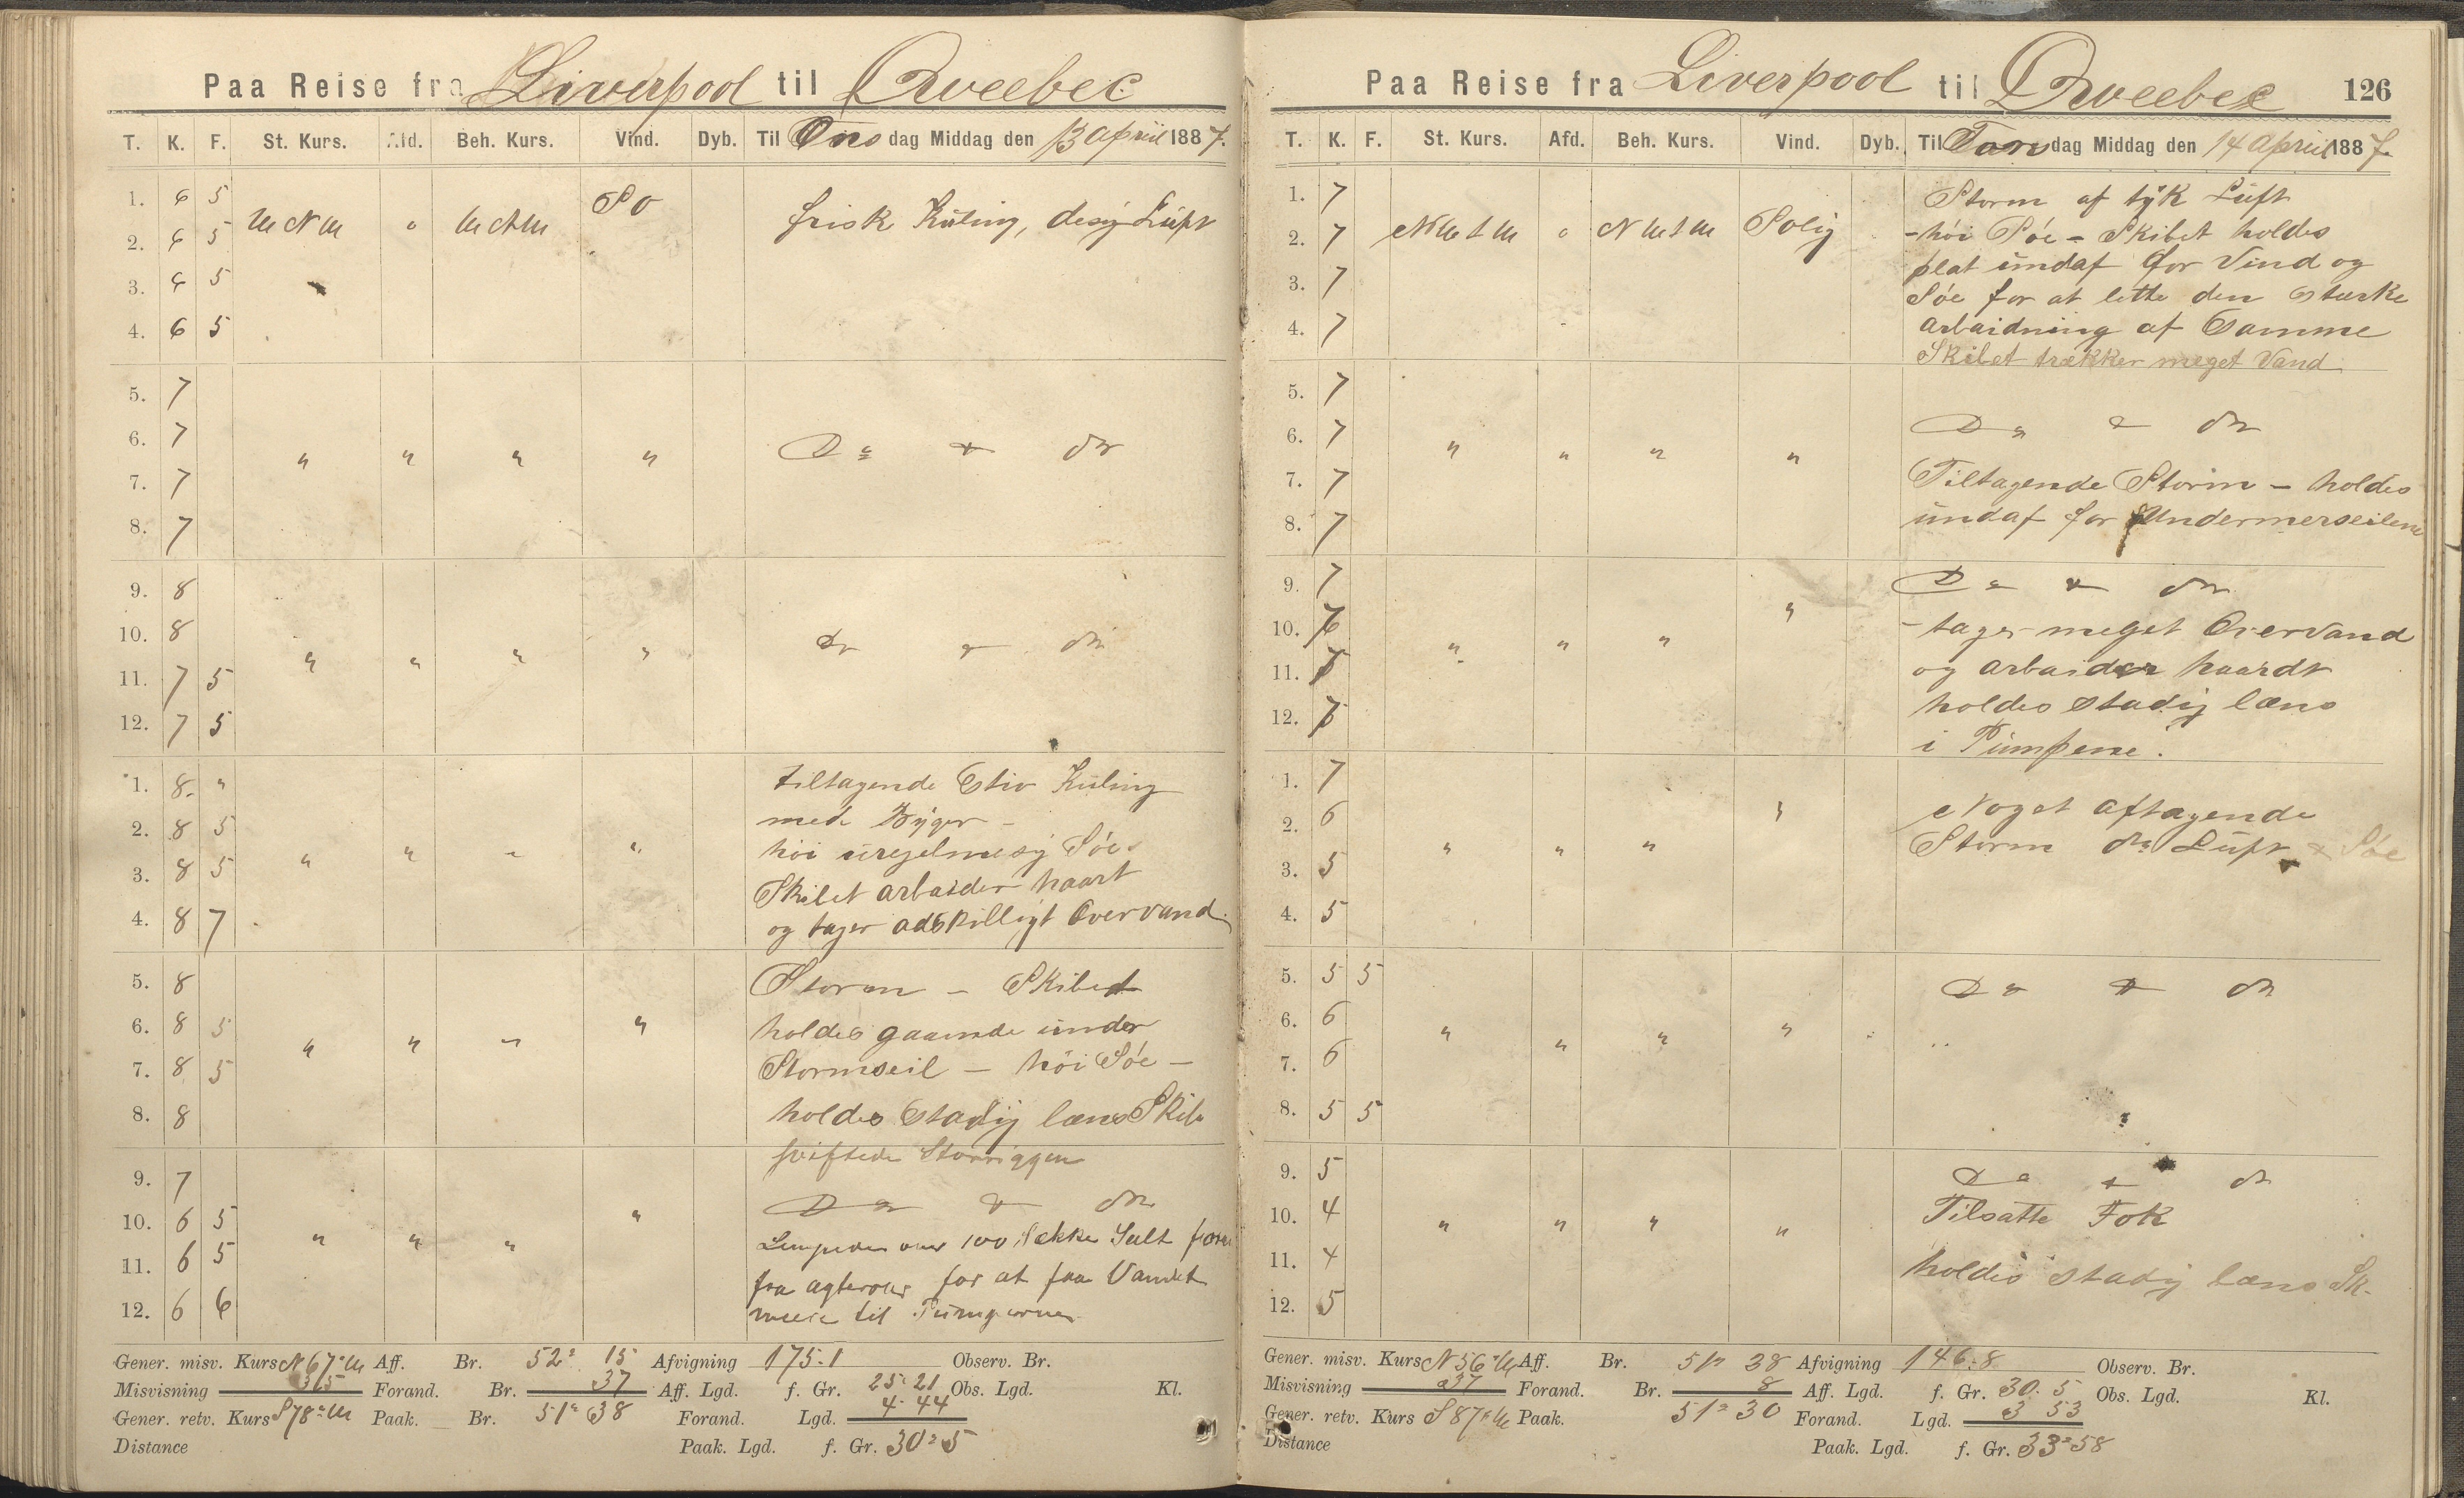 Paa Reise fra Liverpool til Qveebec
T. K. F. St. Kurs. Afd. Beh. Kurs. Vind. Dyb. Til Onsdag Middag den 13 April 1887.
1. 6 5
2. 6 5 WNW " WNW SO frisk Kuling, desig Luft
3. 6 5
4. 6 5
5. 7
6. 7 " " " " Do & do
7. 7
8. 7
9. 8
10. 8 " " " " do & do
11. 7 5
12. 7 5
1. 8 " tiltagende Stiv Kuling
2. 8 5 med Byger –
3. 8 5 " " " " høi uregelmesig Søe.
Skibet arbaider haart
4. 8 7 og tager adskilligt Overvand.
5. 8 Storm – Skibet
6. 8 5 " " " " holdes gaaende under
7. 8 5 Stormseil – høi Søe –
8. 8 holdes Stadig læns Skib
sviftede Storriggen
9. 7 Do & do
10. 6 5 " " " " Lempede over 100 Sække Salt forer
11. 6 5 fra agterover for at faa Vandet
12. 6 6 meere til Pumperne
Gener. misv. Kurs N 67° W Aff. Br. 52° 15 Afvigning 175.1 Observ. Br.
Misvisning 35 Forand. Br. 37 Aff. Lgd. f. Gr. 25° 21 Obs. Lgd. Kl.
Gener. retv. Kurs S 78° W Paak. Br. 51° 38 Forand. Lgd. 4 44
Distance Paak. Lgd. f. Gr. 30° 5
Paa Reise fra Liverpool til Qveebec 126
T. K. F. St. Kurs. Afd. Beh. Kurs. Vind. Dyb. Til Torsdag Middag den 14 April 1887.
1. 7 Storm af tyk Luft
2. 7 NWtW " NWtW Solig – høi Søe – Skibet holdes
plat undaf for Vind og
3. 7 Søe for at lette den sturke
4. 7 arbaidning af Samme
Skibet trækker meget Vand
5. 7
6. 7 " " " " Do & do
7. 7 Tiltagende Storm – holdes
8. 7 undaf for Undermerseilene
9. 7 Do & do
10. 7 " " " " – tager meget Overvand
11. 7 og arbaider haardt
12. 7 holdes stadig læns
i Pumpene.
1. 7
2. 6 Noget aftagende
3. 5 " " " " Storm do Luft & Søe
4. 5
5. 5 5 Do & do
6. 6 " " " "
7. 6
8. 5 5
9. 5 Do & do
10. 4 " " " " Tilsatte Fok
11. 4 holdes stadig læns Sk.
12. 5
Gener. misv. Kurs N 56° W Aff. Br. 51° 38 Afvigning 146.8 Observ. Br.
Misvisning 37 Forand. Br. 8 Aff. Lgd. f. Gr. 30. 5 Obs. Lgd. Kl.
Gener. retv. Kurs S 87° W Paak. 51° 30 Forand. Lgd. 3 53
Distance Paak. Lgd. f. Gr. 33° 58